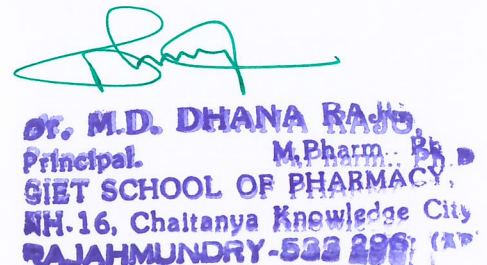 Dr. M.D. DHANA RAJU,
Principal. M.Pharm.. Ph.D
GIET SCHOOL OF PHARMACY,
NH-16, Chaitanya Knowledge City
RAJAHMUNDRY-533 296; (AP